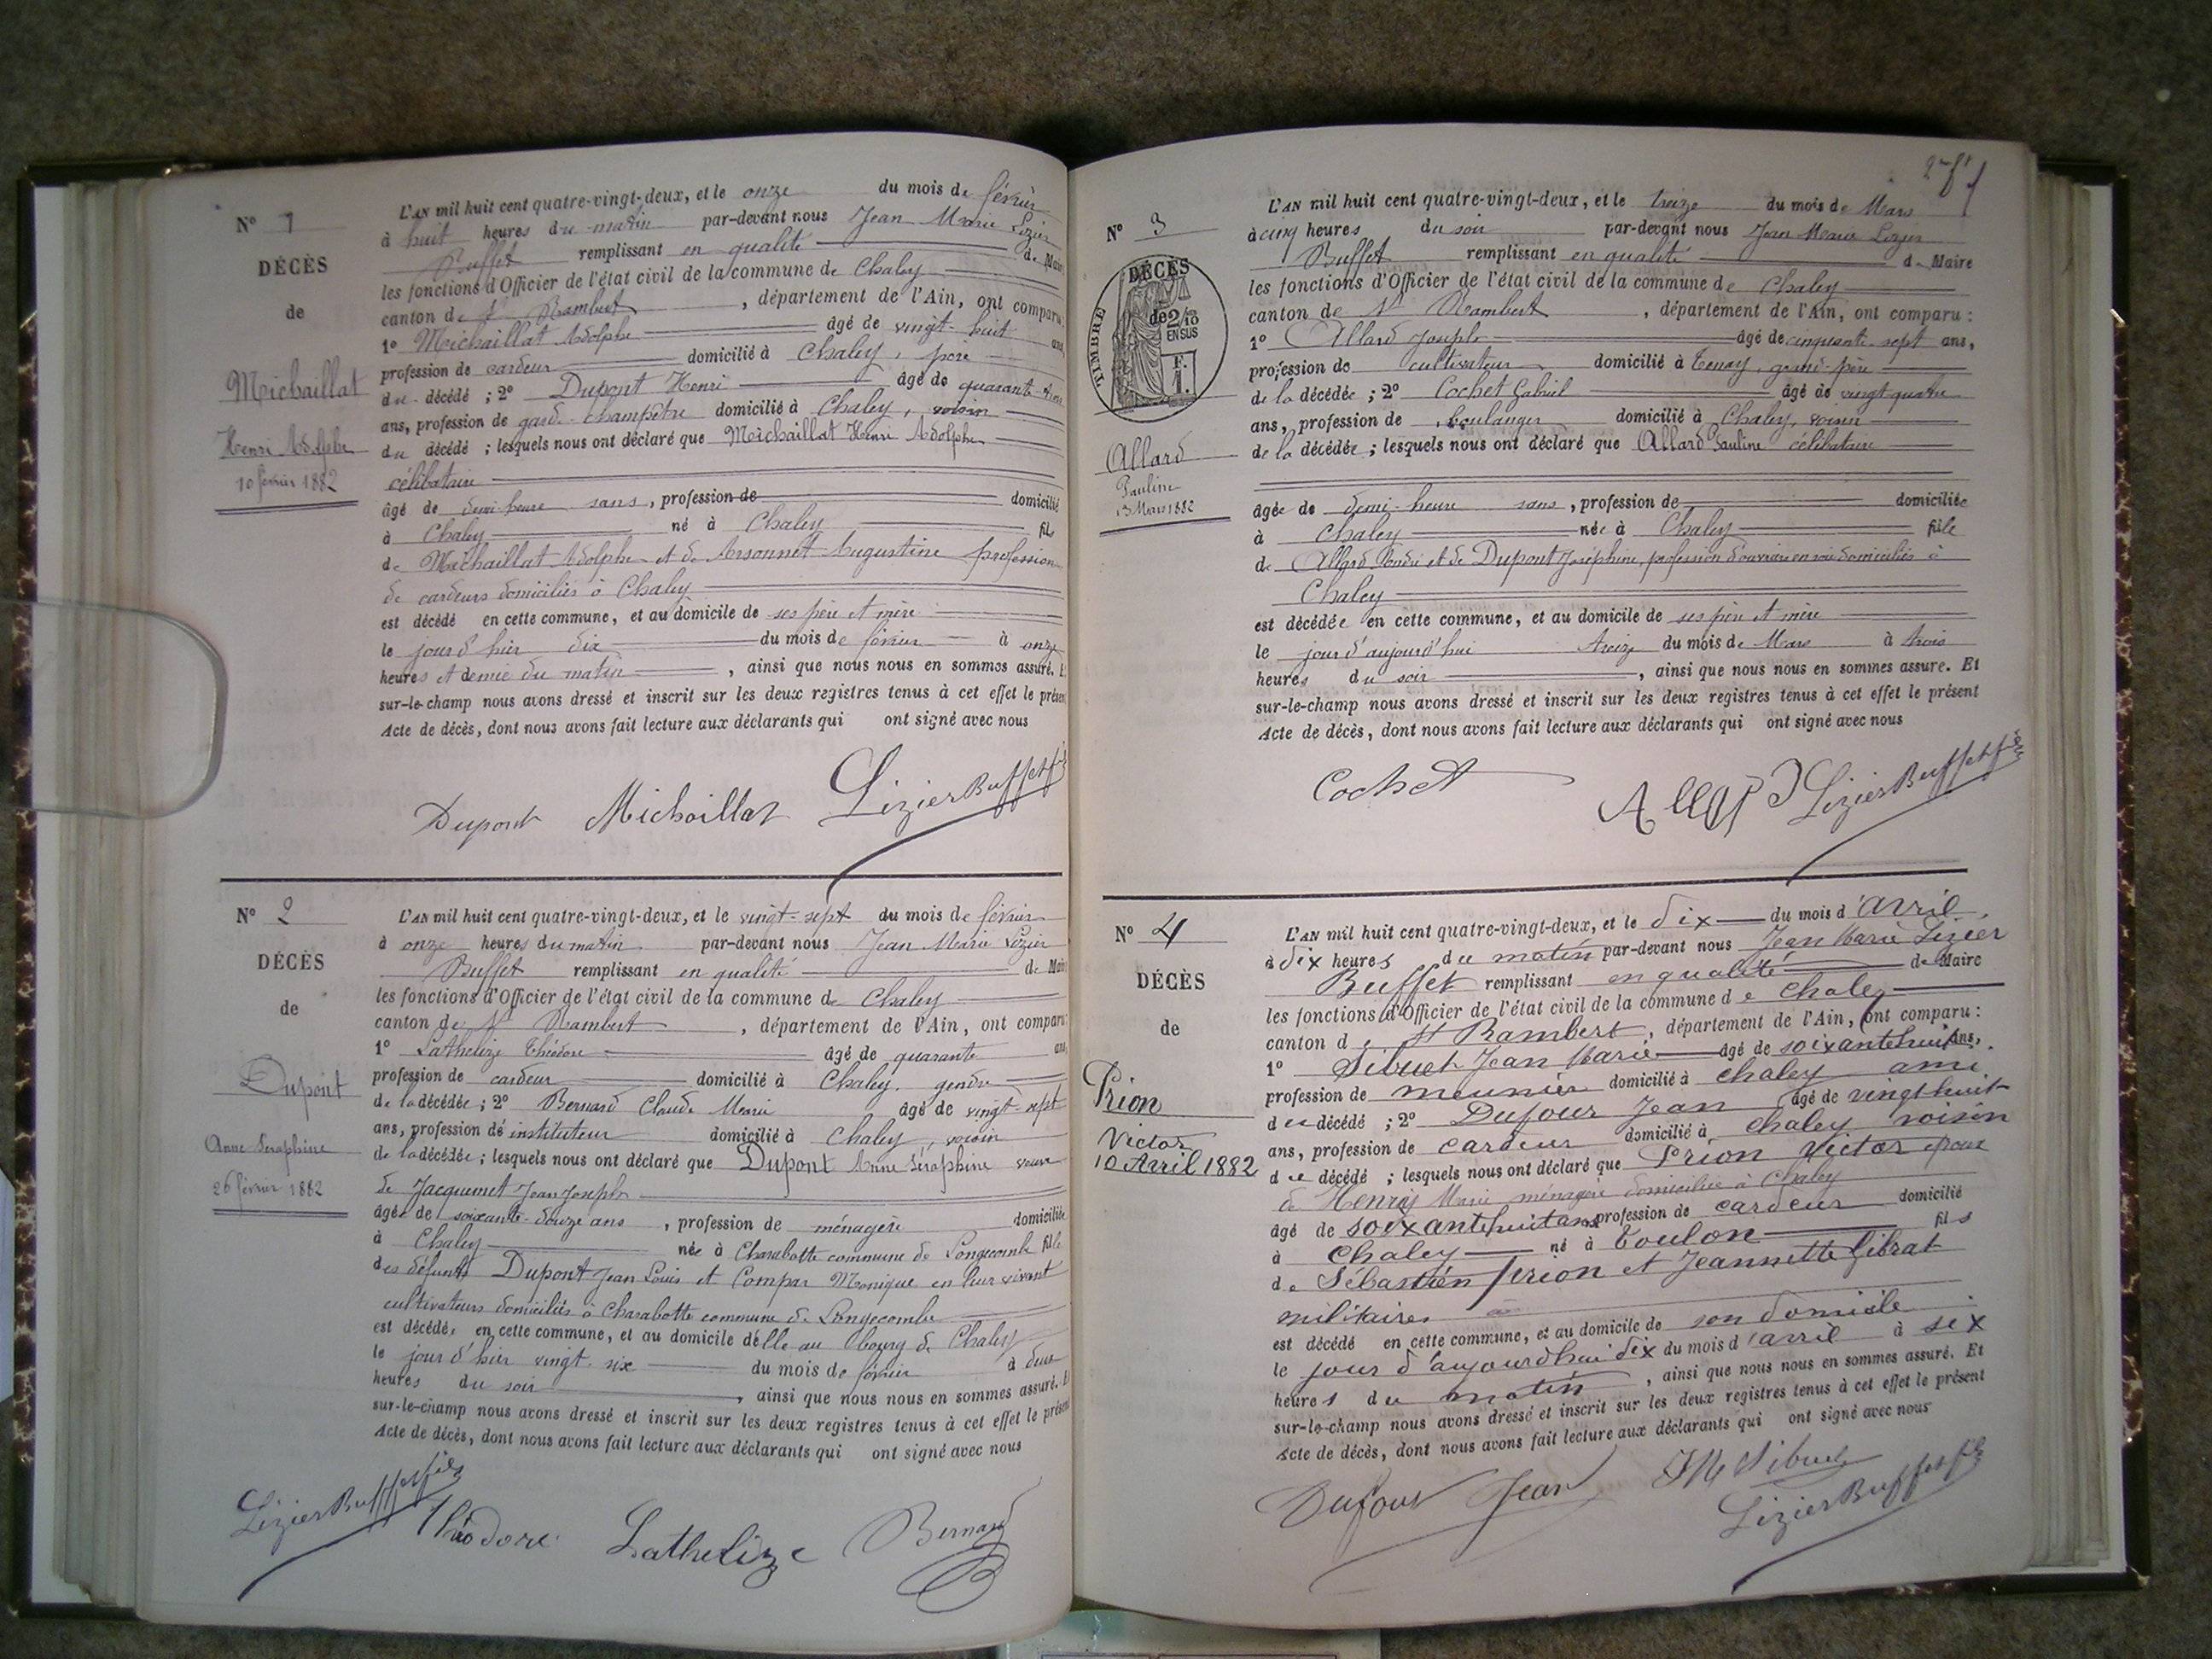 N° 1
DÉCÈS
de
Michaillat
Henri Adolphe
10 février 1882
L'AN mil huit cent quatre-vingt-deux, et le onze du mois de février
à huit heures du matin par-devant nous Jean Marie Lizier
Buffet remplissant en qualité de Maire
les fonctions d'Officier de l'état civil de la commune de Chaley
canton de St Rambert, département de l'Ain, ont comparu:
1° Michaillat Adolphe âgé de vingt-huit ans
profession de cardeur domicilié à Chaley, père
du décédé ; 2° Dupont Henri âgé de quarante
ans, profession de garde-champêtre domicilié à Chaley, voisin
du décédé ; lesquels nous ont déclaré que Michaillat Henri Adolphe
célibataire
âgé de demi-heure sans, profession de domicilié
à Chaley né à Chaley fils
de Michaillat Adolphe et de Arsonnet Augustine profession
de cardeurs domiciliés à Chaley
est décédé en cette commune, et au domicile de ses père et mère
le jour d'hier dix du mois de février à onze
heures et demie du matin, ainsi que nous nous en sommes assuré. E
sur-le-champ nous avons dressé et inscrit sur les deux registres tenus à cet effet le présen
Acte de décès, dont nous avons fait lecture aux déclarants qui ont signé avec nous
Dupont Michaillat Lizier Buffet fils
N° 2
DÉCÈS
de
Dupont
Anne Séraphine
26 février 1882
L'AN mil huit cent quatre-vingt-deux, et le vingt-sept du mois de février
à onze heures du matin par-devant nous Jean Marie Lizier
Buffet remplissant en qualité de Mair
les fonctions d'Officier de l'état civil de la commune de Chaley
canton de St Rambert, département de l'Ain, ont comparu
1° Lathelize Théodore âgé de quarante ans
profession de cardeur domicilié à Chaley, gendre
de la décédée ; 2° Bernard Claude Marie âgé de vingt-sept
ans, profession de instituteur domicilié à Chaley, voisin
de la décédée ; lesquels nous ont déclaré que Dupont Anne Séraphine veuve
de Jacquemet Jean Joseph
âgée de soixante-douze ans, profession de ménagère domiciliée
à Chaley née à Charabotte commune de Longecombe fille
des défunts Dupont Jean Louis et Compar Monique en leur vivant
cultivateurs domiciliés à Charabotte commune de Longecombe
est décédée en cette commune, et au domicile d'elle au bourg de Chaley
le jour d'hier vingt-six du mois de février à deux
heures du soir, ainsi que nous nous en sommes assuré. E
sur-le-champ nous avons dressé et inscrit sur les deux registres tenus à cet effet le présen
Acte de décès, dont nous avons fait lecture aux déclarants qui ont signé avec nous
Lizier Buffet fils Théodore Lathelize Bernard
N° 3
DÉCÈS
de 2/10
EN SUS
TIMBRE
F. 1.
Allard
Pauline
13 Mars 1882
L'AN mil huit cent quatre-vingt-deux, et le treize du mois de Mars
à cinq heures du soir par-devant nous Jean Marie Lizier
Buffet remplissant en qualité de Maire
les fonctions d'Officier de l'état civil de la commune de Chaley
canton de St Rambert, département de l'Ain, ont comparu :
1° Allard Joseph âgé de cinquante-sept ans,
profession de cultivateur domicilié à Tenay, grand-père
de la décédée ; 2° Cochet Gabriel âgé de vingt-quatre
ans, profession de boulanger domicilié à Chaley, voisin
de la décédée ; lesquels nous ont déclaré que Allard Pauline célibataire
âgée de demi-heure sans, profession de domiciliée
à Chaley née à Chaley fille
de Allard André et de Dupont Joséphine, profession d'ouvriers en soie domiciliés à
Chaley
est décédée en cette commune, et au domicile de ses père et mère
le jour d'aujourd'hui treize du mois de Mars à trois
heures du soir, ainsi que nous nous en sommes assuré. Et
sur-le-champ nous avons dressé et inscrit sur les deux registres tenus à cet effet le présent
Acte de décès, dont nous avons fait lecture aux déclarants qui ont signé avec nous
Cochet Allard Lizier Buffet fils
N° 4
DÉCÈS
de
Prion
Victor
10 Avril 1882
L'AN mil huit cent quatre-vingt-deux, et le dix du mois d'avril
à dix heures du matin par-devant nous Jean Marie Lizier
Buffet remplissant en qualité de Maire
les fonctions d'Officier de l'état civil de la commune de Chaley
canton de St Rambert, département de l'Ain, ont comparu :
1° Sibuet Jean Marie âgé de soixante huit ans,
profession de meunier domicilié à chaley ami
du décédé ; 2° Dufour Jean âgé de vingt huit
ans, profession de cardeur domicilié à chaley voisin
du décédé ; lesquels nous ont déclaré que Prion Victor époux
de Henry Marie ménagère domiciliée à Chaley
âgé de soixante huit ans profession de cardeur domicilié
à Chaley né à Toulon fils
de Sébastien prion et Jeannette Gibrat
militaires
est décédé en cette commune, et au domicile de son domicile
le jour d'aujourdhui dix du mois d'avril à six
heures du matin, ainsi que nous nous en sommes assuré. Et
sur-le-champ nous avons dressé et inscrit sur les deux registres tenus à cet effet le présent
Acte de décès, dont nous avons fait lecture aux déclarants qui ont signé avec nous
Dufour Jean JM Sibuet
Lizier Buffet fils